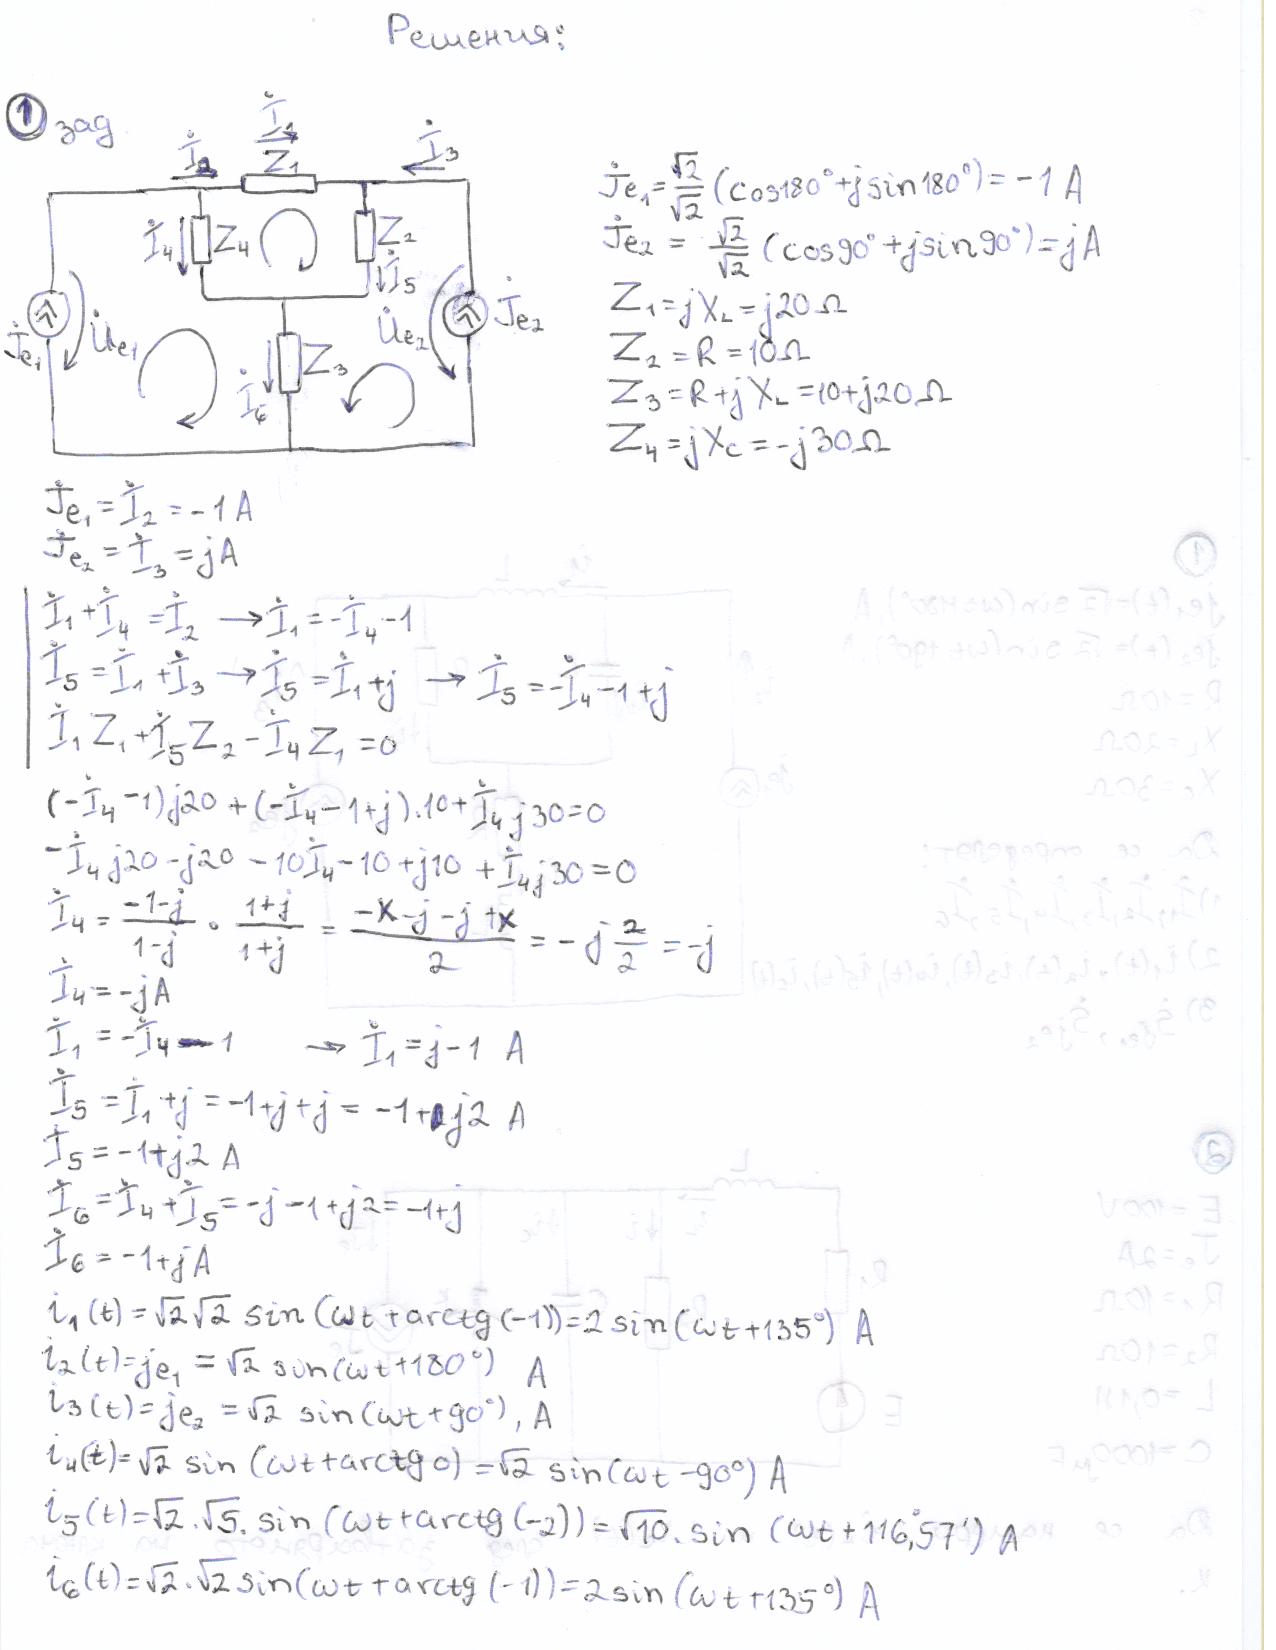 Решения:
① зад
İ₁
İ₂ Z₁ İ₃
İ₄ Z₄ Z₂
İ₅
J̇e₁ U̇e₁ U̇e₂ J̇e₂
İ₆ Z₃
J̇e₁ = √2/√2 (cos180°+jsin180°) = -1 A
J̇e₂ = √2/√2 (cos90°+jsin90°) = jA
Z₁ = jX_L = j20Ω
Z₂ = R = 10Ω
Z₃ = R+jX_L = 10+j20Ω
Z₄ = jX_C = -j30Ω
J̇e₁ = İ₂ = -1 A
J̇e₂ = İ₃ = jA
İ₁ + İ₄ = İ₂ → İ₁ = -İ₄ -1
İ₅ = İ₁ + İ₃ → İ₅ = İ₁ + j → İ₅ = -İ₄ -1 + j
İ₁Z₁ + İ₅Z₂ - İ₄Z₁ = 0
(-İ₄ -1)j20 + (-İ₄ -1+j).10 + İ₄j30 = 0
-İ₄j20 - j20 - 10İ₄ - 10 + j10 + İ₄j30 = 0
İ₄ = (-1-j)/(1-j) · (1+j)/(1+j) = (-1-j-j+1)/2 = -j 2/2 = -j
İ₄ = -jA
İ₁ = -İ₄ - 1 → İ₁ = j-1 A
İ₅ = İ₁ + j = -1+j+j = -1+j2 A
İ₅ = -1+j2 A
İ₆ = İ₄ + İ₅ = -j-1+j2 = -1+j
İ₆ = -1+jA
i₁(t) = √2√2 sin(ωt+arctg(-1)) = 2sin(ωt+135°) A
i₂(t) = je₁ = √2 sin(ωt+180°) A
i₃(t) = je₂ = √2 sin(ωt+90°), A
i₄(t) = √2 sin(ωt+arctg0) = √2 sin(ωt-90°) A
i₅(t) = √2.√5. sin(ωt+arctg(-2)) = √10. sin(ωt+116,°57') A
i₆(t) = √2.√2sin(ωt+arctg(-1)) = 2sin(ωt+135°) A